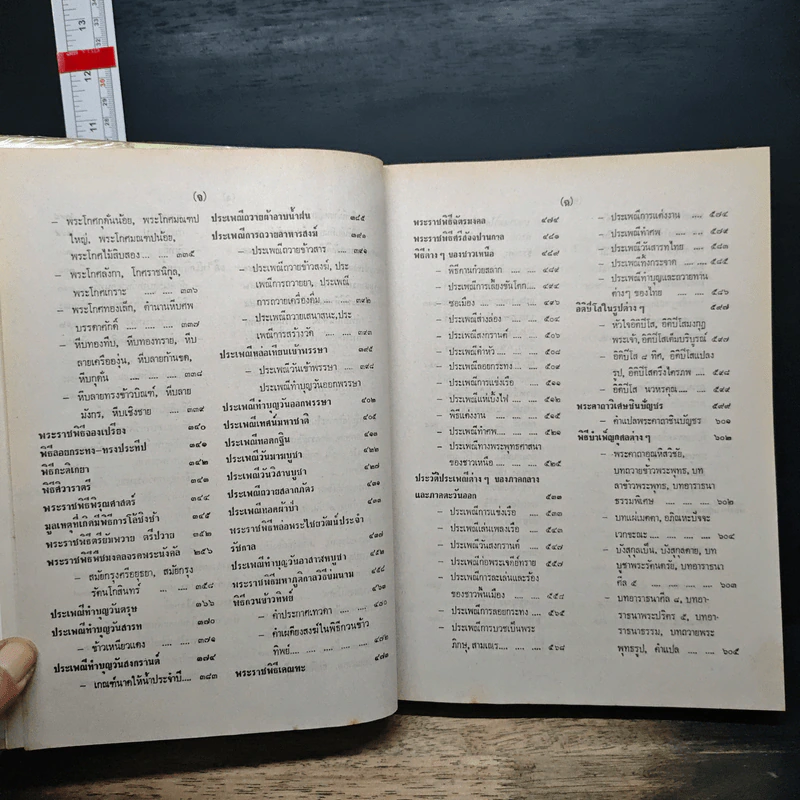 13
12
11
(จ)
– พระโกศกุดั่นน้อย, พระโกศมณฑป
ใหญ่, พระโกศมณฑปน้อย,
พระโกศไม้สิบสอง .... .... ๓๓๕
– พระโกศลังกา, โกศราชนิกุล,
พระโกศเกราะ .... .... ๓๓๖
– พระโกศทองเล็ก, ตำนานหีบศพ
บรรดาศักดิ์ .... .... .... ๓๓๗
– หีบทองทึบ, หีบทองทราย, หีบ
ลายเครือยงุ่น, หีบลายก้านขด,
หีบกุดั่น .... .... .... ๓๓๘
– หีบลายทรงข้าวบิณฑ์, หีบลาย
มังกร, หีบเชิงชาย .... ๓๓๙
พระราชพิธีจองเปรียง ๓๔๐
พิธีลอยกระทง-ทรงประทีป ๓๔๑
พิธีกะติเกยา ๓๔๒
พิธีศิวาราตรี ๓๔๓
พระราชพิธีพิรุณศาสตร์ ๓๔๔
มูลเหตุที่เกิดมีพิธีการโล้ชิงช้า ๓๔๕
พระราชพิธีตรียัมพวาย ตรีปวาย
พระราชพิธีพืชมงคลจรดพระนังคัล ๒๕๖
– สมัยกรุงศรีอยุธยา, สมัยกรุง
รัตนโกสินทร์ .... .... ๓๕๘
ประเพณีทำบุญวันตรุษ ๓๖๖
ประเพณีทำบุญวันสารท ๓๗๐
– ข้าวเหนียวแดง .... .... ๓๗๑
ประเพณีทำบุญวันสงกรานต์ ๓๗๔
– เกณฑ์นาคให้น้ำประจำปี .... ๓๘๓
ประเพณีถวายผ้าอาบน้ำฝน ๓๘๕
ประเพณีการถวายอาหารสงฆ์ ๓๙๑
– ประเพณีถวายข้าวสาร .... ๓๙๑
– ประเพณีถวายข้าวสงฆ์, ประ
เพณีการถวายยา, ประเพณี
การถวายเครื่องดื่ม .... ๓๙๒
– ประเพณีถวายเสนาสนะ, ประ
เพณีการสร้างวัด .... ๓๙๓
ประเพณีหล่อเทียนเข้าพรรษา ๓๙๕
– ประเพณีวันเข้าพรรษา .... ๓๙๘
– ประเพณีทำบุญวันออกพรรษา
ประเพณีทำบุญวันออกพรรษา ๔๐๒
ประเพณีเทศน์มหาชาติ ๔๐๕
ประเพณีทอดกฐิน ๔๑๐
ประเพณีวันมาฆบูชา ๔๒๑
ประเพณีวันวิสาขบูชา ๔๒๔
ประเพณีถวายสลากภัตร ๔๓๑
ประเพณีทอดผ้าป่า ๔๓๓
พระราชพิธีหล่อพระไชยวัฒน์ประจำ
รัชกาล
ประเพณีทำบุญวันอาสาฬหบูชา
พระราชพิธีมหาภูติกาลวิธีข่มนาม
พิธีกวนข้าวทิพย์ ๔๖๑
– คำประกาศเทวดา .... .... ๔๗๐
– คำเผดียงสงฆ์ในพิธีกวนข้าว
ทิพย์ .... .... .... .... ๔๗๒
พระราชพิธีเคณฑะ ๔๗๓
(ฉ)
พระราชพิธีฉัตรมงคล ๔๗๙
พระราชพิธีศรีสัจจปานกาล ๔๘๑
พิธีต่าง ๆ ของชาวเหนือ ๔๘๙
– พิธีทานก๋วยสลาก .... .... ๔๙๔
– ประเพณีการเลี้ยงขันโตก ....
ของเมือง .... .... .... .... ๔๙๖
– ประเพณีส่างลอง .... .... ๕๐๔
– ประเพณีสงกรานต์ .... ๕๐๗
– ประเพณีดำหัว .... .... ๕๐๗
– ประเพณีลอยกระทง .... ๕๐๘
– ประเพณีการแข่งเรือ .... ๕๑๑
– ประเพณีแห่บั้งไฟ .... ๕๑๒
– พิธีแต่งงาน .... .... .... ๕๑๕
– ประเพณีทำศพ .... .... ๕๑๙
– ประเพณีทางพระพุทธศาสนา
ของชาวเหนือ .... .... ๕๒๕
ประวัติประเพณีต่าง ๆ ของภาคกลาง
และภาคตะวันออก ๕๓๓
– ประเพณีการแข่งเรือ .... ๕๓๓
– ประเพณีเล่นเพลงเรือ .... ๕๓๙
– ประเพณีวันสงกรานต์ .... ๕๔๗
– ประเพณีก่อพระเจดีย์ทราย ๕๕๗
– ประเพณีการละเล่นและร้อง
ของชาวพื้นเมือง .... .... ๕๕๙
– ประเพณีการลอยกระทง .... ๕๖๕
– ประเพณีการบวชเป็นพระ
ภิกษุ, สามเณร .... .... ๕๖๘
– ประเพณีการแต่งงาน .... ๕๗๔
– ประเพณีทำศพ .... .... ๕๗๙
– ประเพณีวันสารทไทย .... ๕๘๓
– ประเพณีทิ้งกระจาด .... ๕๘๔
– ประเพณีทำบุญและถวายทาน
ต่างๆ ของไทย .... .... ๕๘๖
อิติปิโสในรูปต่าง ๆ ๕๙๗
– หัวใจอิติปิโส, อิติปิโสมงกุฎ
พระเจ้า, อิติปิโสเต็มบริบูรณ์ ๕๙๗
– อิติปิโส ๘ ทิศ, อิติปิโสแปลง
รูป, อิติปิโสตรึงไตรภพ .... ๕๙๘
– อิติปิโส นวหรคุณ .... .... ๕๙๙
พระคาถาวิเศษชินบัญชร ๕๙๙
– คำแปลพระคาถาชินบัญชร ๖๐๑
พิธีบำเพ็ญกุศลต่าง ๆ ๖๐๒
– พระคาถาอุณหิสวิชัย,
บทถวายข้าวพระพุทธ, บท
ลาข้าวพระพุทธ, บทอาราธนา
ธรรมพิเศษ .... .... .... ๖๐๒
– บทแผ่เมตตา, อภิณหะปัจจะ
เวกขะณะ .... .... .... ๖๐๔
– บังสุกุลเป็น, บังสุกุลตาย, บท
บูชาพระรัตนตรัย, บทอาราธนา
ศีล ๕ .... .... .... .... ๖๐๓
– บทอาราธนาศีล ๘, บทอา-
ราธนาพระปริตร ๕, บทอา-
ราธนาธรรม, บทถวายพระ
พุทธรูป, คำแปล .... .... ๖๐๕